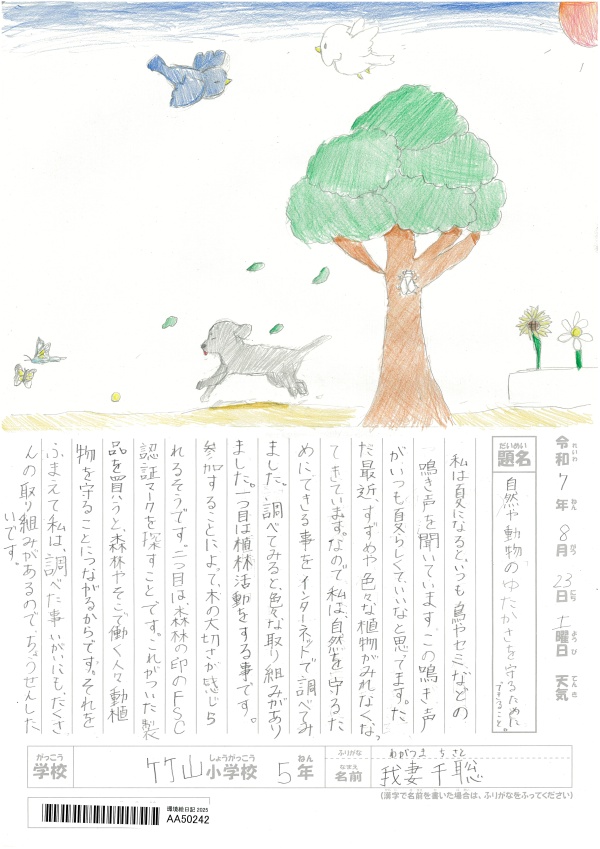 令和7年8月23日土曜日 天気
れいわ ねん がつ にち ようび てんき
だいめい
題名
自然や動物のゆたかさを守るために
できること。
私は夏になるといつも鳥やセミなどの
鳴き声を聞いています。この鳴き声
がいつも夏らしくて、いいなと思ってます。た
だ最近、すずめや色々な植物がみれなくなっ
てきています。なので、私は、自然を守るた
めにできる事をインターネットで調べてみ
ました。調べてみると、色々な取り組みがあり
ました。一つ目は植林活動をする事です。
参加することによって、木の大切さが感じら
れるそうです。二つ目は、森林の印のFSC
認証マークを探すことです。これがついた製
品を買うと、森林やそこで働く人々、動植
物を守ることにつながるからです。それを
ふまえて私は、調べた事いがいにも、たくさ
んの取り組みがあるので、ちょうせんした
いです。
がっこう
学校
竹山小学校 5年
しょうがっこう ねん
ふりがな わがつま ちさと
なまえ
名前 我妻 千聡
(漢字で名前を書いた場合は、ふりがなをふってください)
環境絵日記 2025
AA50242